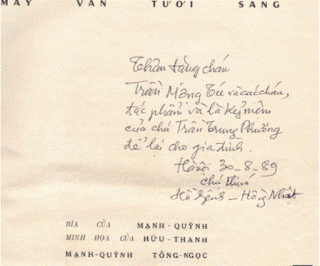 MÂY VẪN TƯƠI SÁNG
Thân tặng cháu
Trần Mộng Tú và các cháu,
tác phẩm và là kỷ niệm
của chú Trần Trung Phương
để lại cho gia đình.
Hà nội 30-8-89
Chú thím
Hồ Dzếnh - Hồng Nhật
BÌA CỦA MẠNH-QUỲNH
MINH HỌA CỦA HỮU-THANH
MẠNH-QUỲNH TÔNG-NGỌC